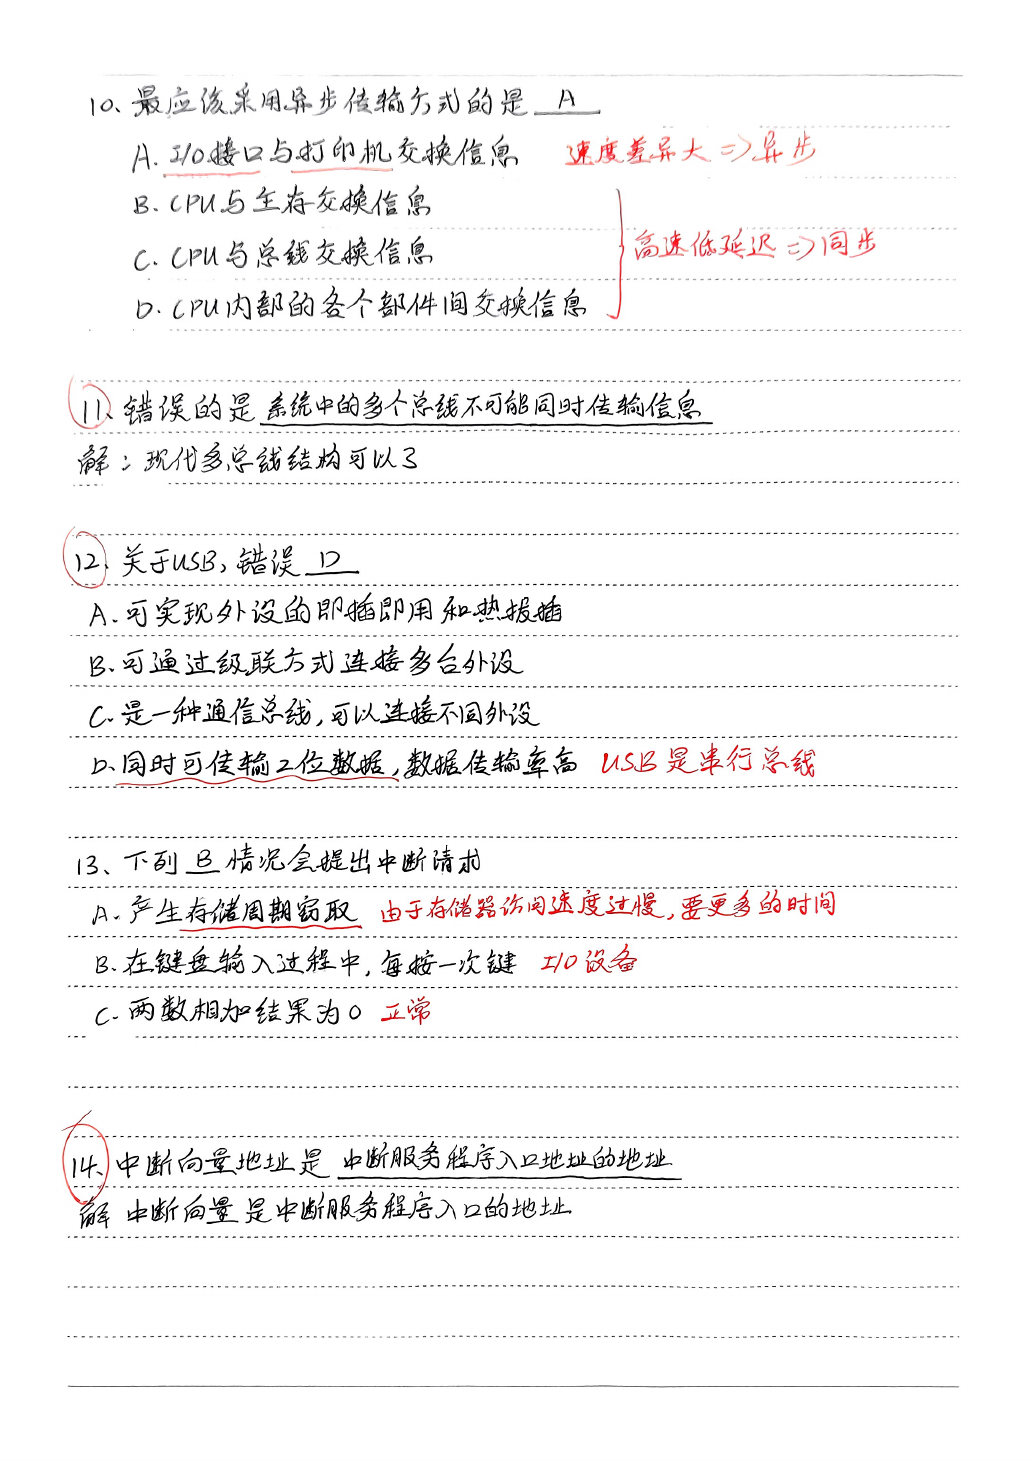 10、最应该采用异步传输方式的是 A
A. I/O接口与打印机交换信息 速度差异大 => 异步
B. CPU与主存交换信息
C. CPU与总线交换信息 高速低延迟 => 同步
D. CPU内部的各个部件间交换信息
11、错误的是 系统中的多个总线不可能同时传输信息
解：现代多总线结构可以了
12、关于USB，错误 D
A. 可实现外设的即插即用和热拔插
B. 可通过级联方式连接多台外设
C. 是一种通信总线，可以连接不同外设
D. 同时可传输2位数据，数据传输率高 USB是串行总线
13、下列 B 情况会提出中断请求
A. 产生存储周期窃取 由于存储器访问速度过慢，要更多的时间
B. 在键盘输入过程中，每按一次键 I/O设备
C. 两数相加结果为0 正常
14、中断向量地址是 中断服务程序入口地址的地址
解 中断向量是中断服务程序入口的地址